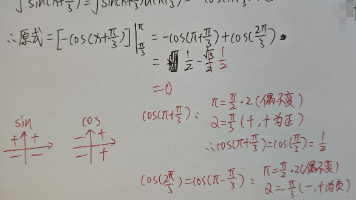 ∫sin(x+π/3) = ∫sin(x+π/3)d(x+π/3) = -cos(x+π/3)
∴原式=[-cos(x+π/3)]|π π/3 = -cos(π+π/3)+cos(2π/3)
= 1/2 - 1/2
=0
cos(π+π/3): π=π/2·2(偶不变)
2=π/3(+,+为正)
∴cos(π+π/3)=cos(π/3)=1/2
sin cos
+ + - +
- - - +
cos(2π/3)=cos(π-π/3): π=π/2·2(偶不变)
2=-π/3(-,+为负)